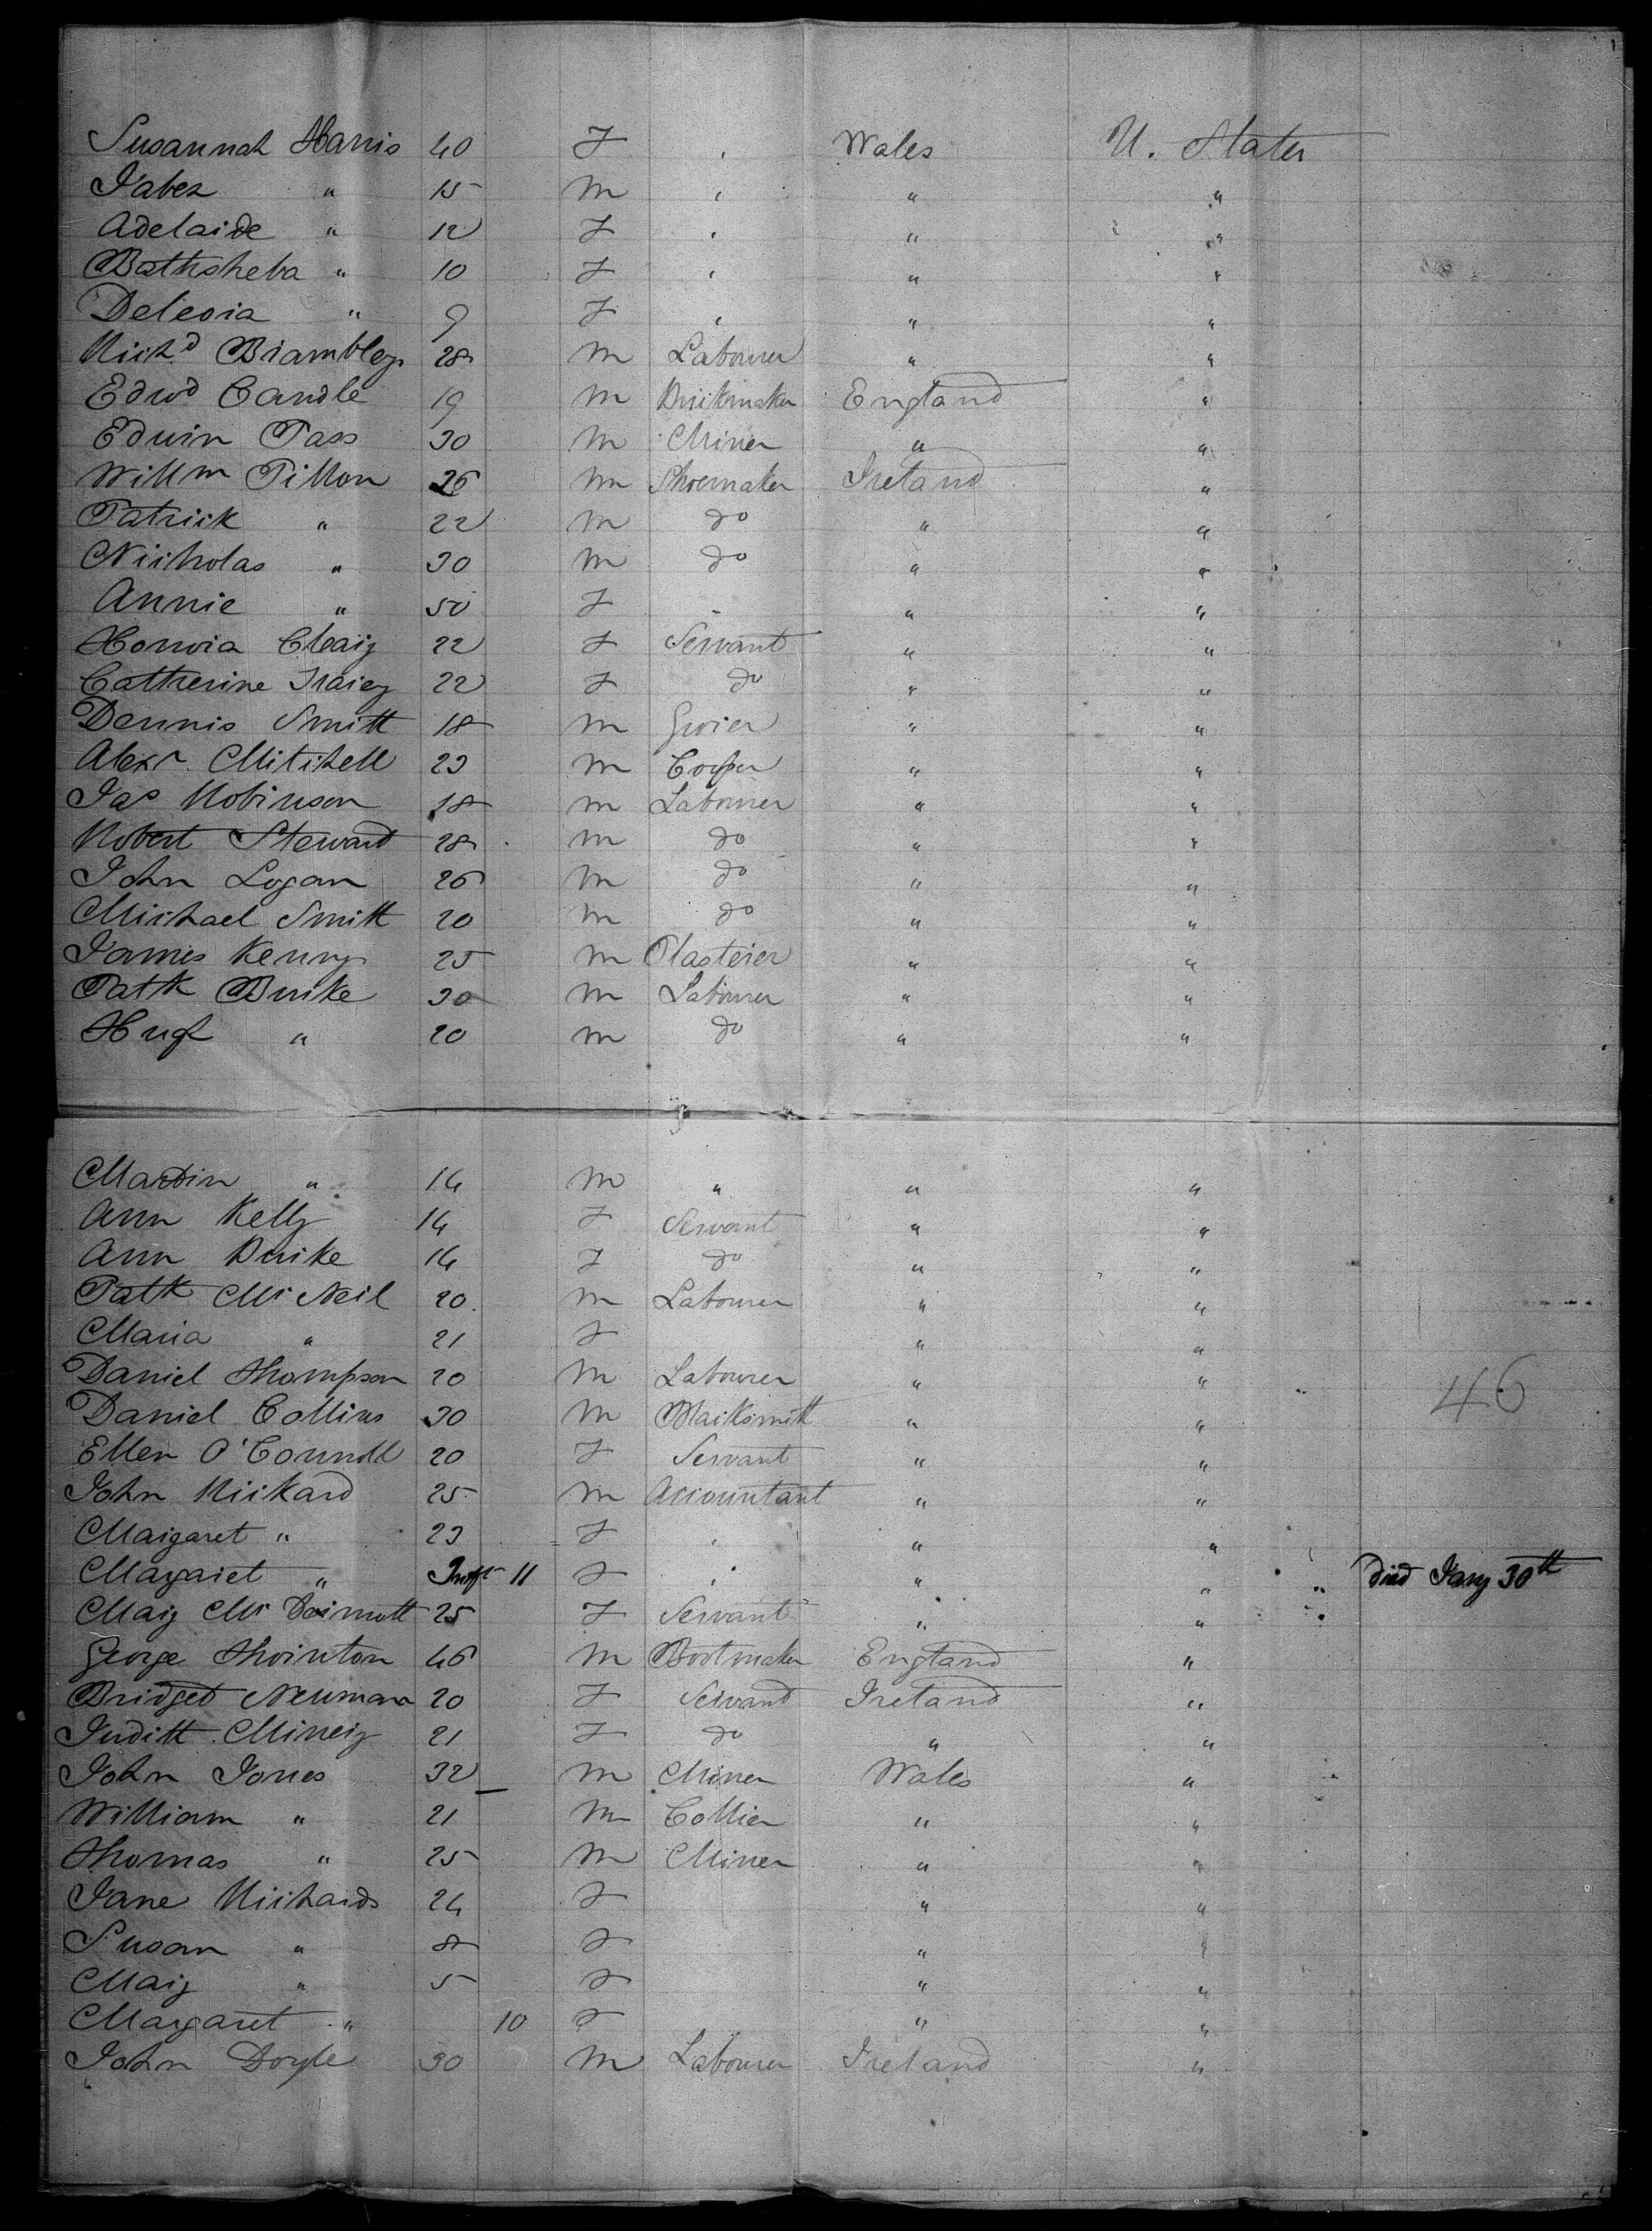 Susannah Harris 40 F , Wales U. States
Jabez " 15 M , " "
Adelaide " 12 F , " "
Bathsheba " 10 F , " "
Deleoia " 9 F , " "
Richd Brambley 28 M Labourer " "
Edwd Candle 19 M Brickmaker England "
Edwin Pass 30 M Miner " "
Willm Tillon 26 M Shoemaker Ireland "
Patrick " 22 M do " "
Nicholas " 30 M do " "
Annie " 50 F " " "
Honoria Cleary 22 F Servant " "
Catherine 22 F do " "
Dennis Smith 18 M Grocer " "
Alexr Mitchell 23 M Cooper " "
Jas Robinson 18 M Labourer " "
Robert Steward 28 M do " "
John Logan 26 M do " "
Michael Smith 20 M do " "
James Kenny 25 M Plasterer " "
Patk Burke 30 M Labourer " "
Hugh " 20 M do " "
Martin " 14 M " " "
Ann Kelly 14 F Servant " "
Ann Burke 14 F do " "
Patk McNeil 20 M Labourer " "
Maria " 21 F " "
Daniel Thompson 20 M Labourer " "
46
Daniel Collins 30 M Blacksmith " "
Ellen O'Connell 20 F Servant " "
John Rickard 25 M Accountant " "
Margaret " 23 F , " "
Margaret " Inft 11 F , " " " died Jany 30th
Mary McDermott 25 F Servant " "
George Thornton 46 M Bootmaker England "
Bridget Newman 20 F Servant Ireland "
Judith 21 F do " "
John Jones 32 M Miner Wales "
William " 21 M Collier " "
Thomas " 25 M Miner " "
Jane Richards 24 F " "
Susan " 8 F " "
Mary " 5 F " "
Margaret " 10 F " "
John Doyle 30 M Labourer Ireland "